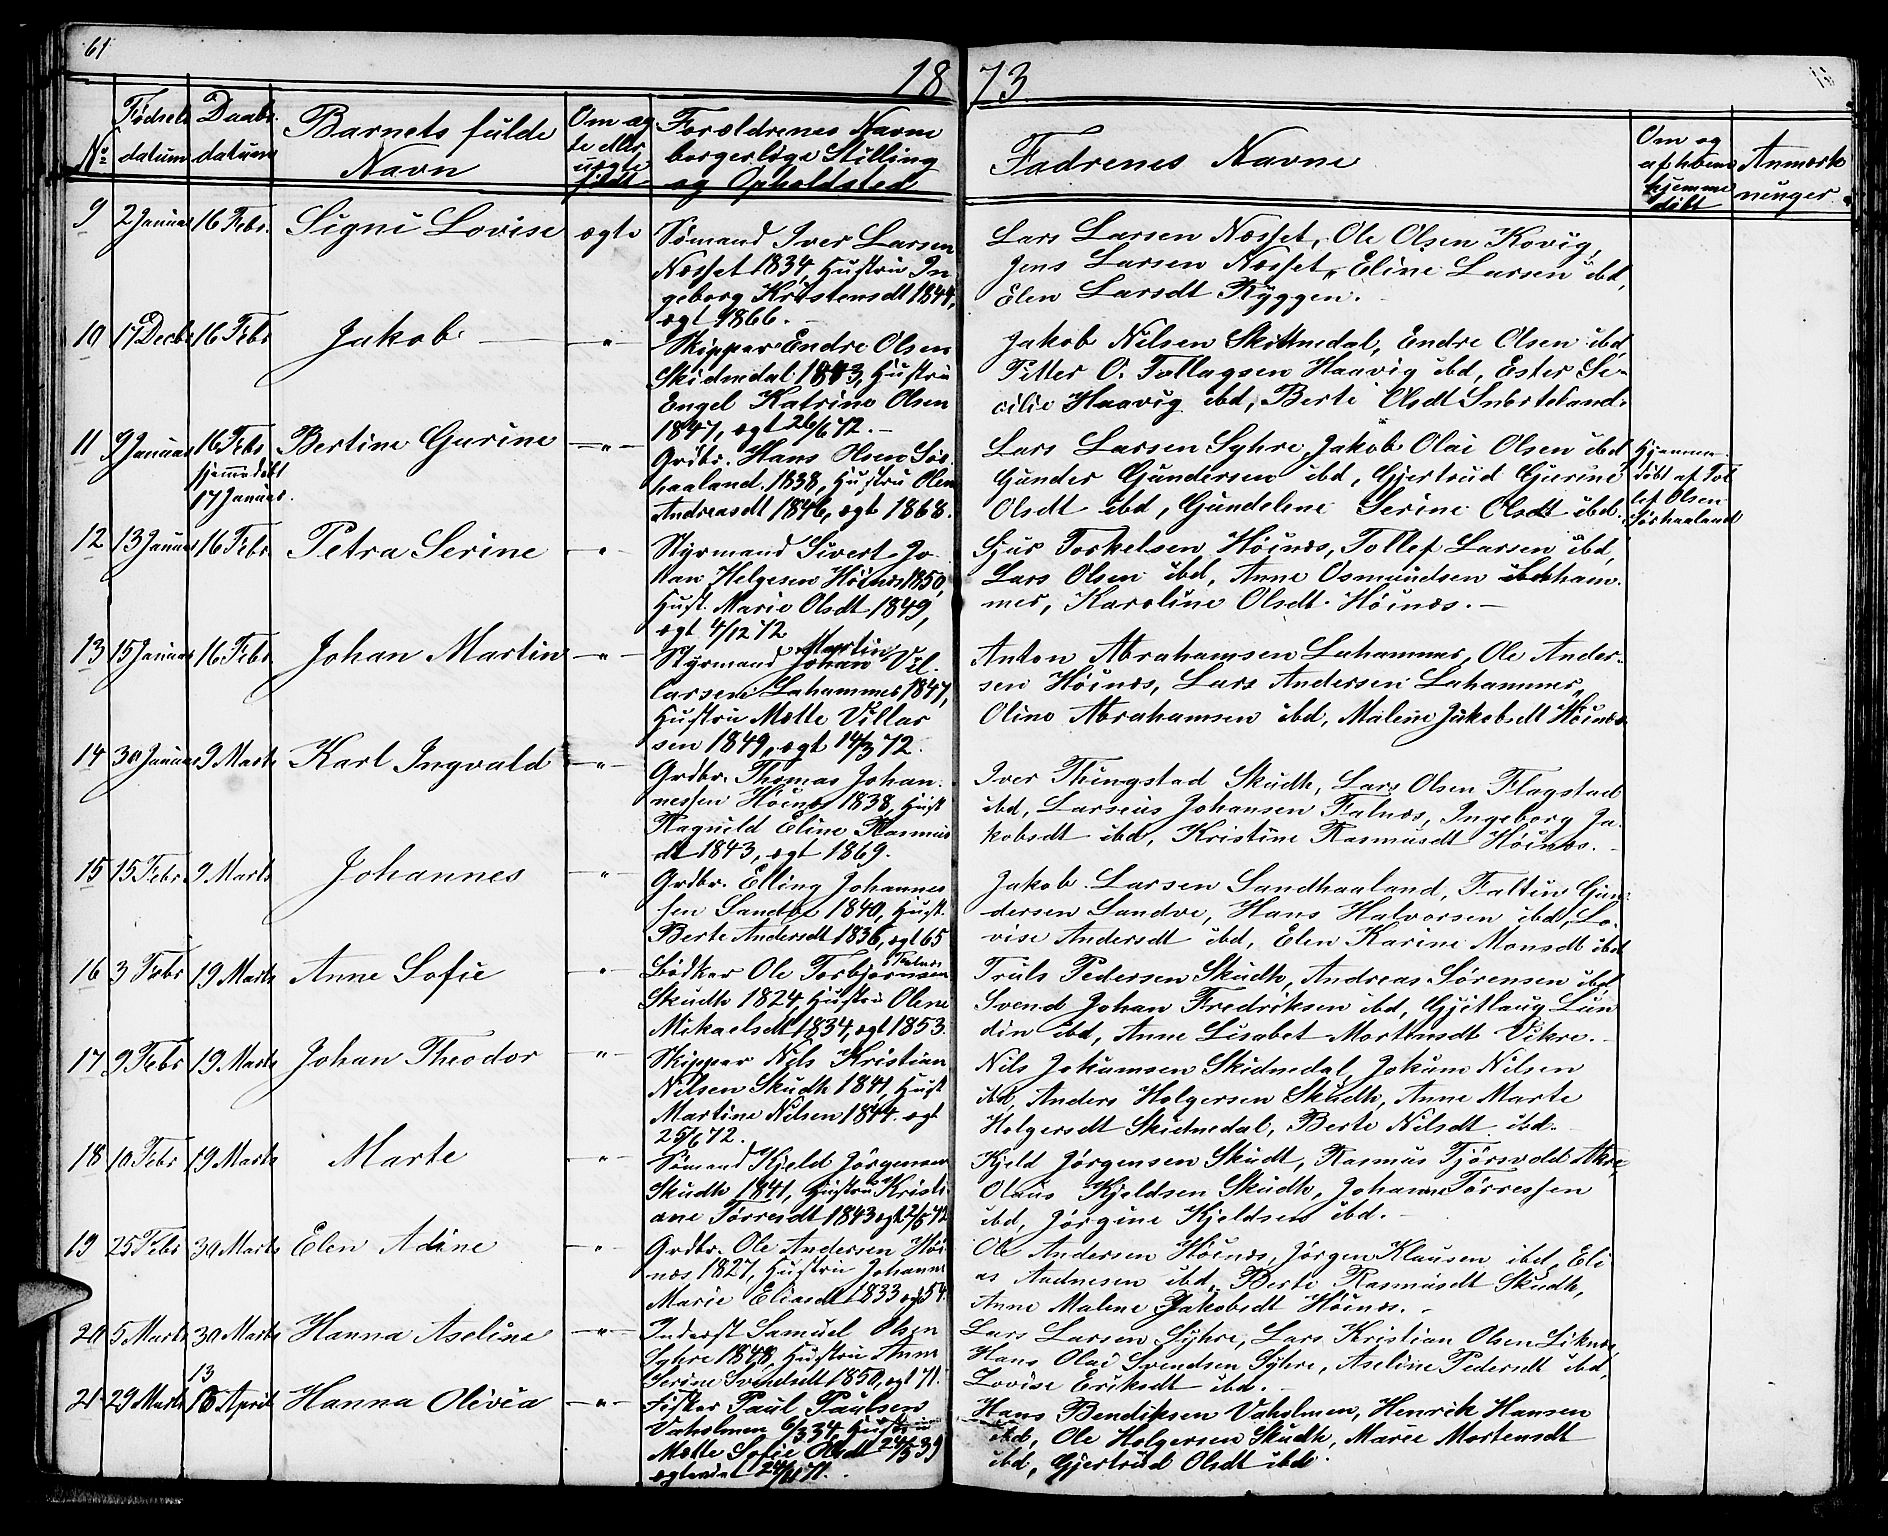 61
1873
No
Fødsels datum
Daabs datum
Barnets fulde Navn
Om ægte eller uægte født
Forældrenes Navne borgerlige Stilling og Opholdsted
Fadrenes Navne
Om og af hvem hjemmedöbt
Anmærkninger
9 2 Januar 16 Febr. Signi Lovise ægte
Sømand Iver Larsen
Næsset 1834, Hustru In-
geborg Kristensdt 1844,
ægt 1866.
Lars Larsen Næsset, Ole Olsen Kovig,
Jens Larsen Næsset, Eline Larsen ibd,
Elen Larsdt Ryggen.
10 17 Decbr 16 Febr Jakob — " —
Skipper Endre Olsen
Skidnedal 1843, Hustru
Engel Katrine Olsen
1847, ægt 26/6 72. —
Jakob Nilsen Skidnedal, Endre Olsen ibd,
Pitter O. Tollagsen Haavig ibd, Ester Se-
cilie Haavig ibd, Berte Olsdt Snørteland.
11 9 Januar 16 Febr Bertine Gurine — " —
Hjemmedøbt
17 Januar.
Grdbr. Hans Olsen Sør-
haaland 1838, Hustru Olene
Andreasdt 1846, ægt 1868.
Lars Larsen Syhre, Jakob Olai Olsen ibd
Gunder Gundersen ibd, Gjertrud Gurine
Olsdt ibd, Gundelene Serine Olsdt ibd.
Hjemme-
døbt af Tol-
lef Olsen
Sørhaaland
12 13 Januar 16 Febr. Petra Serine — " —
Styrmand Sivert Jo-
nan Helgesen Høinæs 1850,
Hust. Marie Olsdt 1849,
ægt 4/12 72
Sjur Torkelsen Høinæs, Tollef Larsen ibd,
Lars Olsen ibd, Anne Osmundsen Laham-
mer, Karoline Olsdt Høinæs. —
13 15 Januar 16 Febr Johan Martin — " —
Martin
Styrmand Johan Vil-
larsen Lahammer 1847,
Hustru Mette Villar
sen 1849, ægt 14/3 72.
Anton Abrahamsen Lahammer, Ole Ander-
sen Høinæs, Lars Andersen Lahammer,
Oline Abrahamsen ibd, Malene Jakobsdt Høinæs.
14 30 Januar 9 Marts Karl Ingvald — " —
Grdbr. Thomas Johan-
nessen Høinæs 1838, Hust
Ragnild Eline Rasmus
dt 1843, ægt 1869.
Iver Thingstad Skudh, Lars Olsen Flagstad
ibd, Larseus Johansen Falnæs, Ingeborg Ja-
kobsdt ibd, Kristine Rasmusdt Høinæs. —
15 15 Febr 9 Marts Johannes — " —
Grdbr. Elling Johannes
sen Sandve 1840, Hust.
Berte Andersdt 1836, ægt 65
Jakob Larsen Sandhaaland, Faltin Gun-
dersen Sandve, Hans Halvorsen ibd, Lo-
vise Andersdt ibd, Elen Karine Monsdt ibd
16 3 Febr 19 Marts Anne Sofie "
Bødker Ole Torbjørnsen
Skudh 1824, Hustru Olene
Mikaelsdt 1834, ægt 1853.
Truls Pedersen Skudh, Andreas Sørensen ibd,
Svend Johan Fredriksen ibd, Gjitlaug Lun
din ibd, Anne Lisabet Mortensdt Vikre. —
17 9 Febr 19 Marts Johan Theodor — " —
Skipper Nils Kristian
Nilsen Skudh 1841, Hust
Martine Nilsen 1844. ægt
25/6 72.
Nils Jokumsen Skidnedal, Jokum Nilsen
ibd, Anders Holgersen Skudh, Anne Marte
Holgersdt Skidnedal, Berte Nilsdt ibd. —
18 10 Febr 19 Marts Marte — " —
Sømand Kjeld Jørgensen
Skudh 1841, Hustru Kristi-
ane Tørresdt 1843 ægt 2/5 72
Kjeld Jørgensen Skudt, Rasmus Tjørsvold Akre,
Olaus Kjeldsen Skudh, Johanne Tørressen
ibd, Jørgine Kjeldsen ibd. —
19 25 Febr 30 Marts Elen Adine — " —
Grdbr. Ole Andersen Høi-
næs, 1827, Hustru Johanne
Marie Eliasdt 1833 ægt 54.
Ole Andersen Høinæs, Jørgen Klausen ibd, Eli-
as Andnesen ibd, Berte Rasmusdt Skudh,
Anne Malene Jakobsdt Høinæs. —
20 5 Marts 30 Marts Hanna Aseline — " —
Inderst Samuel Olsen
Syhre 1848, Hustru Anne
Serine Svendsdt 1850, ægt 71.
Lars Larsen Syhre, Lars Kristian Olsen Liknæs,
Hans Olai Svendsen Syhre, Aseline Pedersdt ibd,
Lovise Eriksdt ibd. —
21 29 Marts 13 April Hanna Olivia — " —
Fisker Paul Paulsen
Vaholmen 6/3 34, Hustru
Mette Sofie Olsdt 24/3 39
ægteviet 24/11 71.
Hans Bendiksen Vaholmen, Henrik Hansen
ibd, Ole Holgersen Skudh, Maree Mortensdt
ibd, Gjertrud Olsdt ibd.